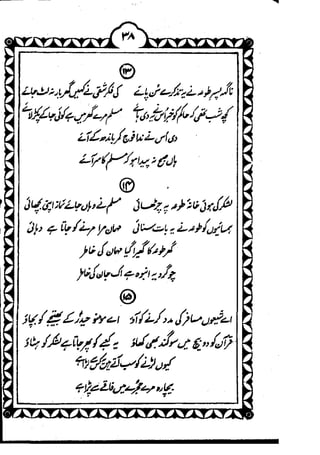 ۳۸
۱۳
ناگہ پسرِ طوعہ نے یہ تذکرے سن پائے کی فکر شقی نے کہیں گھر بار نہ لٹ جائے
کچھ شب تھی کہ حاکم کو خبر اس نے یہ دی ہائے مسلم مرے گھر میں ہے کوئی جا کے پکڑ لائے
دی اس نے ندا فوج کمر باندھ کے آئے
ہاں صبح نہ پیدا ہو کہ مسلم کا سر آئے
۱۴
لشکر کی ہوئی خانۂ طوعہ پہ چڑھائی مسلم نے وہاں جائے نماز اپنی بچھائی
ہمسایوں کو طوعہ نے یہ بات سنائی مہمان مرا مرنے کو جاتا ہے دہائی
گھر طوعہ کا گھیرا گیا مہمان کی خاطر
چوگرد یہ انبوہ ہے اک جان کی خاطر
۱۵
اے شیعوں مسافر کی مدد کرنے کو آؤ اے مومنو حیدر کے بھتیجے کو بچاؤ
قرآن کو دو بیچ میں سوگند بھی کھاؤ یہ کہنے کو پھر جاتا ہے لشکر کو ہٹاؤ
کیوں لڑنے کو سب آئے ہیں کس پڑا ہے
بیچارہ مرے حجرے میں فاقے سے پڑا ہے